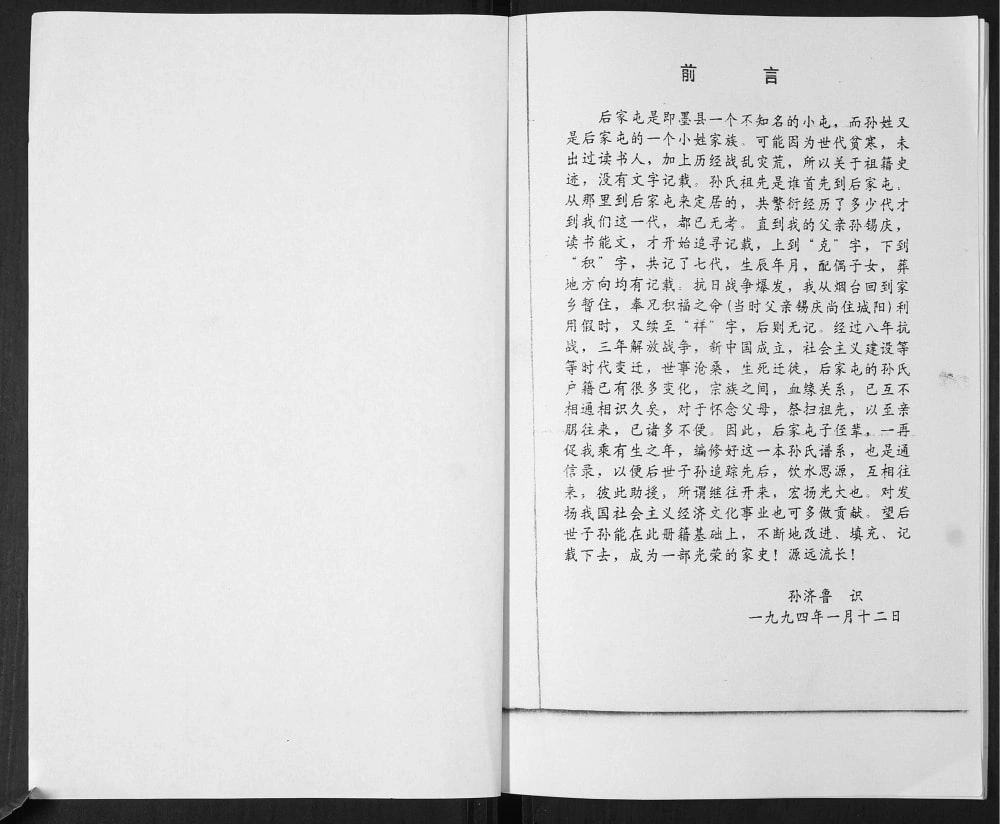 前言
后家屯是即墨县一个不知名的小屯，而孙姓又
是后家屯的一个小姓家族。可能因为世代贫寒，未
出过读书人，加上历经战乱灾荒，所以关于祖籍史
迹，没有文字记载。孙氏祖先是谁首先到后家屯、
从那里到后家屯来定居的，共繁衍经历了多少代才
到我们这一代，都已无考。直到我的父亲孙锡庆，
读书能文，才开始追寻记载，上到“克”字，下到
“积”字，共记了七代，生辰年月，配偶子女，葬
地方向均有记载。抗日战争爆发，我从烟台回到家
乡暂住，奉兄积福之命(当时父亲锡庆尚住城阳)利
用假时，又续至“祥”字，后则无记。经过八年抗
战，三年解放战争，新中国成立，社会主义建设等
等时代变迁，世事沧桑，生死迁徒，后家屯的孙氏
户籍已有很多变化，宗族之间，血缘关系，已互不
相通相识久矣，对于怀念父母，祭扫祖先，以至亲
朋往来，已诸多不便。因此，后家屯子侄辈，一再
促我乘有生之年，编修好这一本孙氏谱系，也是通
信录，以便后世子孙追踪先后，饮水思源，互相往
来，彼此助援，所谓继往开来，宏扬光大也。对发
扬我国社会主义经济文化事业也可多做贡献。望后
世子孙能在此册籍基础上，不断地改进、填充、记
载下去，成为一部光荣的家史！源远流长！
孙济鲁 识
一九九四年一月十二日